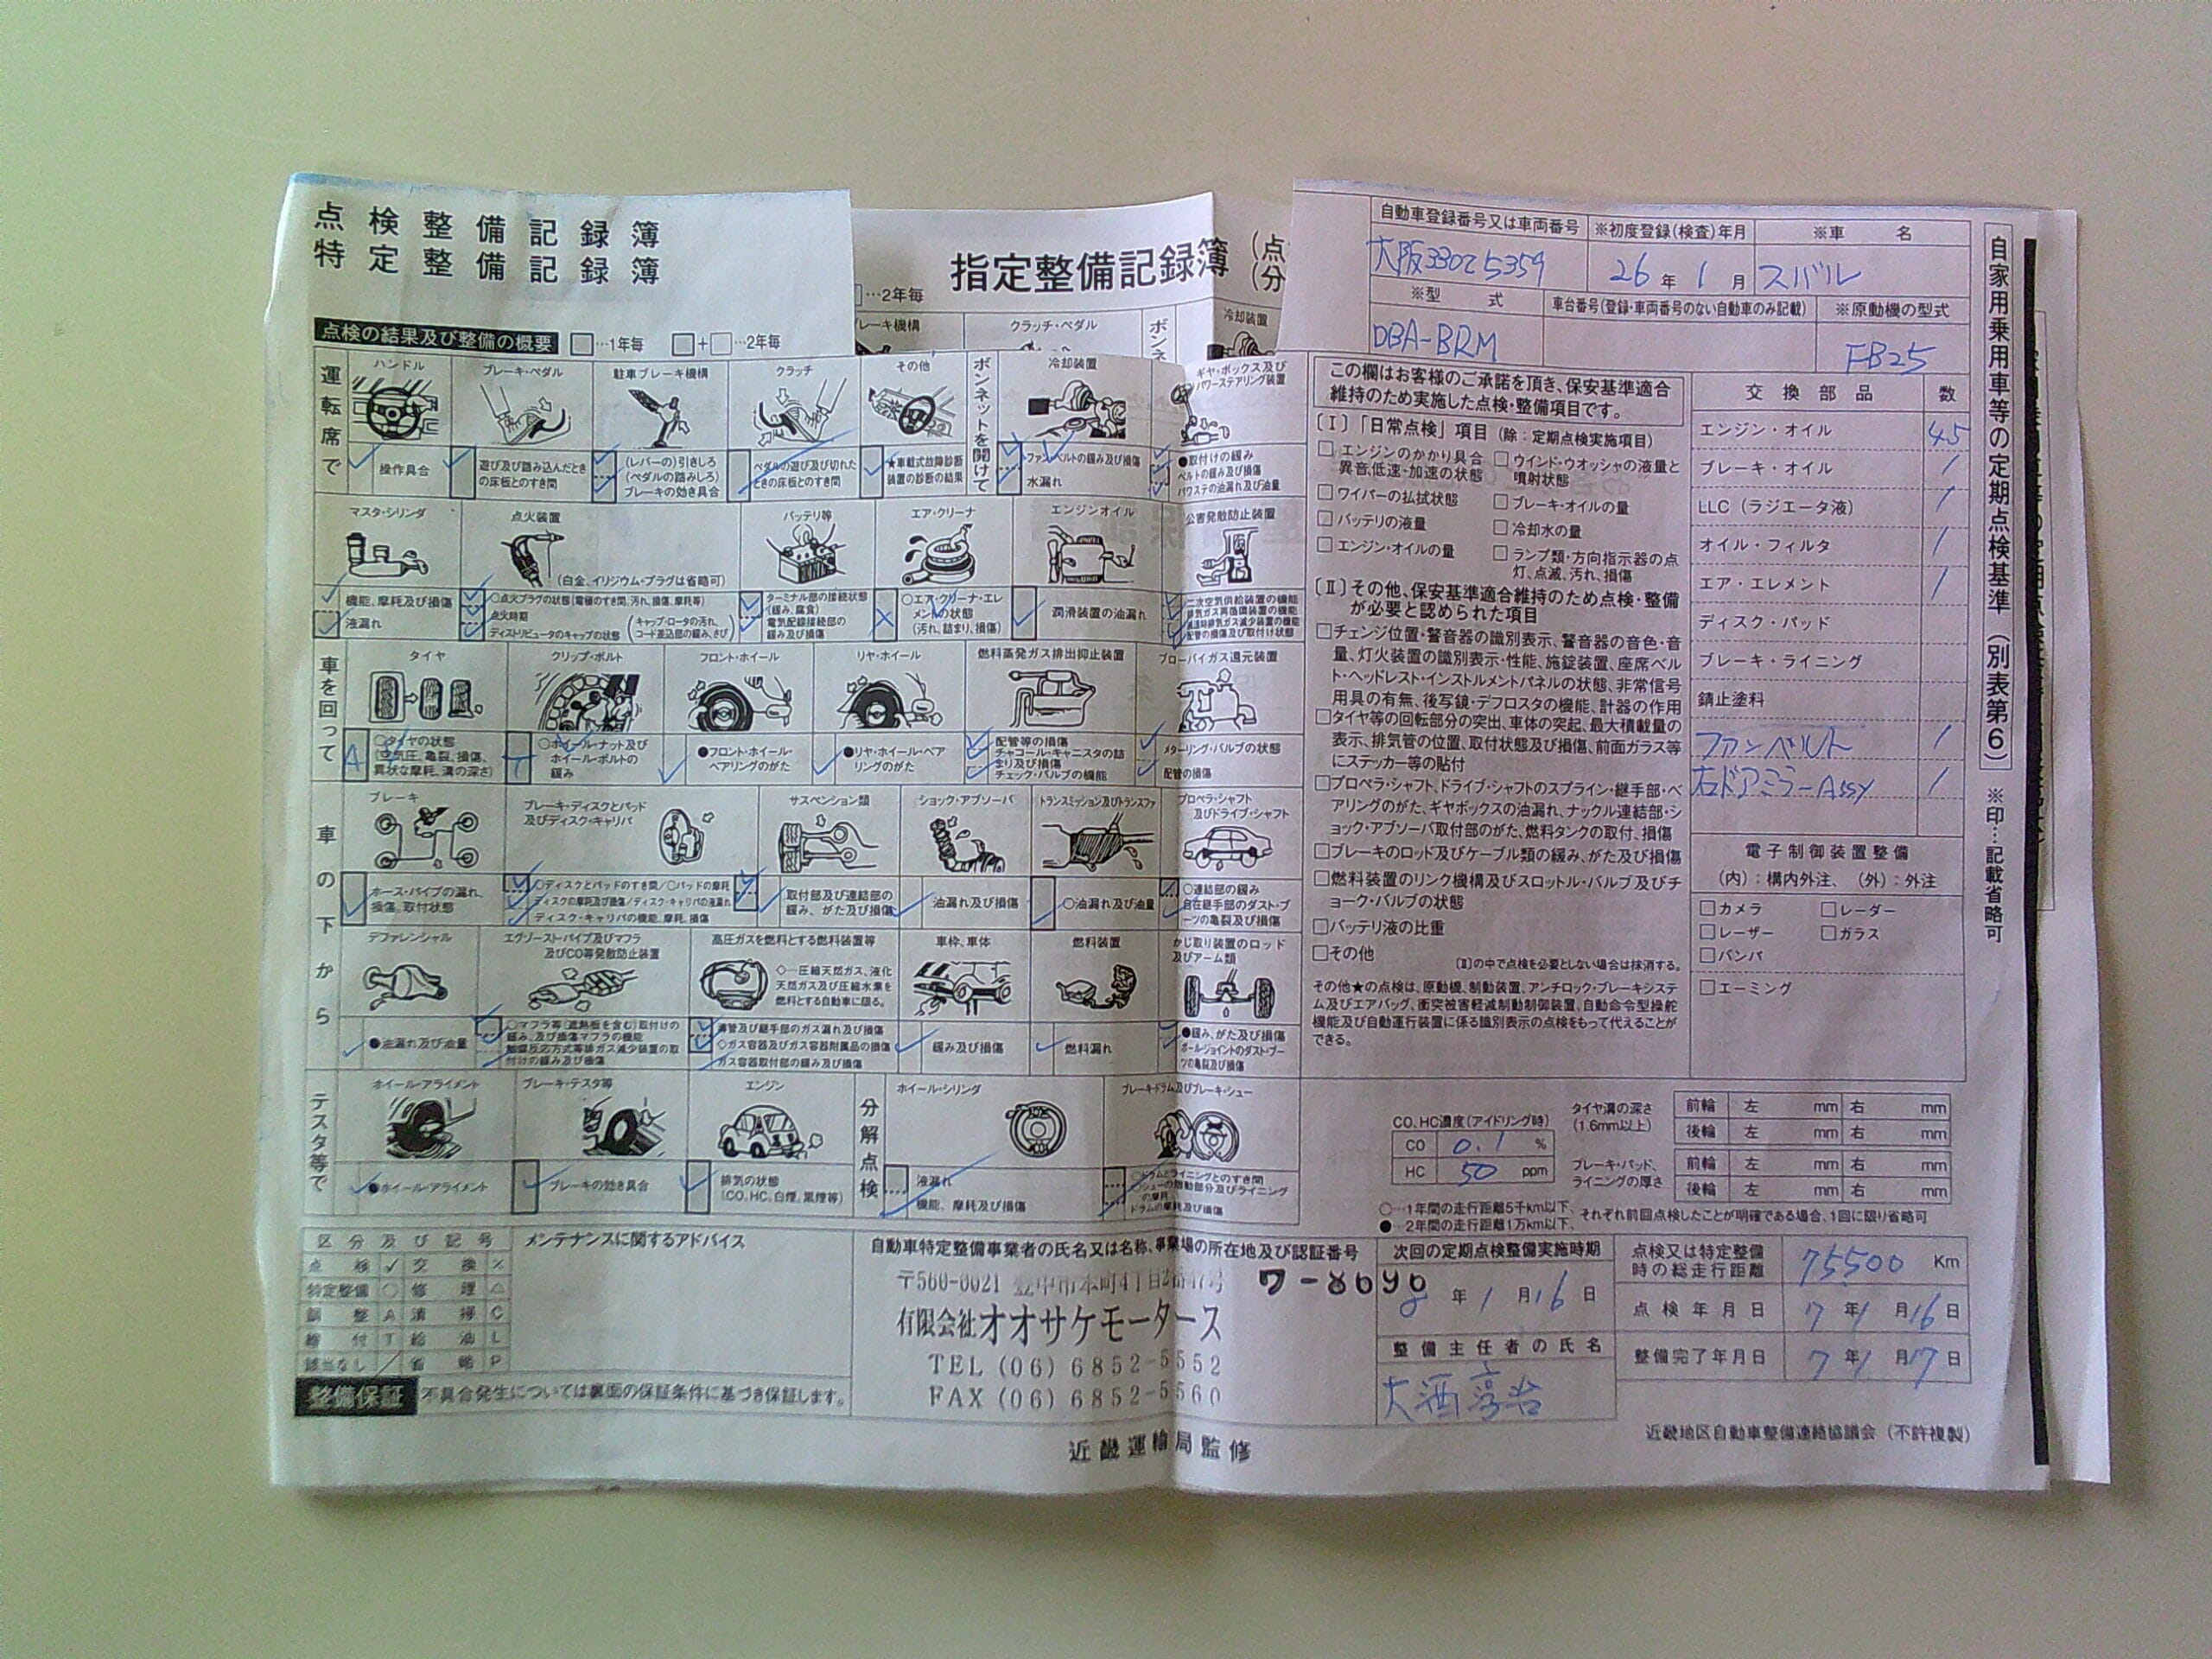 点検整備記録簿
特定整備記録簿
指定整備記録簿 (点
(分
…2年毎
レーキ機構
クラッチ・ペダル
ボンネ
冷却装置
点検の結果及び整備の概要 …1年毎 + …2年毎
自動車登録番号又は車両番号 ※初度登録(検査)年月 ※車 名
26年1月 スバル
※型 式 車台番号(登録・車両番号のない自動車のみ記載) ※原動機の型式
DBA-BRM FB25
自家用乗用車等の定期点検基準(別表第6) ※印…記載省略可
運転席で
ハンドル
操作具合
ブレーキ・ペダル
遊び及び踏み込んだとき
の床板とのすき間
駐車ブレーキ機構
(レバーの)引きしろ
(ペダルの踏みしろ)
ブレーキの効き具合
クラッチ
ペダルの遊び及び切れた
ときの床板とのすき間
その他
★車載式故障診断
装置の診断の結果
ボンネットを開けて
冷却装置
ファンベルトの緩み及び損傷
水漏れ
ギヤ・ボックス及び
パワーステアリング装置
●取付けの緩み
ベルトの緩み及び損傷
パワステの油漏れ及び油量
マスタ・シリンダ
機能、摩耗及び損傷
液漏れ
点火装置
(白金、イリジウム・プラグは省略可)
○点火プラグの状態(電極のすき間、汚れ、損傷、摩耗等)
点火時期
ディストリビュータのキャップの状態 (キャップ・ロータの汚れ、
コード差込部の緩み、さび)
バッテリ等
ターミナル部の接続状態
(緩み、腐食)
電気配線接続部の
緩み及び損傷
エア・クリーナ
○エア・クリーナ・エレ
メントの状態
(汚れ、詰まり、損傷)
エンジンオイル
潤滑装置の油漏れ
公害発散防止装置
二次空気供給装置の機能
排気ガス再循環装置の機能
減速時排気ガス減少装置の機能
配管の損傷及び取付け状態
車を回って
タイヤ
A ○タイヤの状態
(空気圧、亀裂、損傷、
異状な摩耗、溝の深さ)
クリップ・ボルト
T ○ホイール・ナット及び
ホイール・ボルトの
緩み
フロント・ホイール
●フロント・ホイール・
ベアリングのがた
リヤ・ホイール
●リヤ・ホイール・ベア
リングのがた
燃料蒸発ガス排出抑止装置
配管等の損傷
チャコール・キャニスタの詰
まり及び損傷
チェック・バルブの機能
ブローバイガス還元装置
メターリング・バルブの状態
配管の損傷
車の下から
ブレーキ
ホース・パイプの漏れ、
損傷、取付状態
ブレーキ・ディスクとパッド
及びディスク・キャリパ
○ディスクとパッドのすき間/○パッドの摩耗
ディスクの摩耗及び損傷/ディスク・キャリパの液漏れ
ディスク・キャリパの機能、摩耗、損傷
サスペンション類
取付部及び連結部の
緩み、がた及び損傷
ショック・アブソーバ
油漏れ及び損傷
トランスミッション及びトランスファ
○油漏れ及び油量
プロペラ・シャフト
及びドライブ・シャフト
○連結部の緩み
自在継手部のダスト・ブ
ーツの亀裂及び損傷
デファレンシャル
●油漏れ及び油量
エグゾーストパイプ及びマフラ
及びCO等発散防止装置
○マフラ等(遮熱板を含む)取付けの
緩み、及び損傷マフラの機能
触媒反応方式等排ガス減少装置の取
付けの緩み及び損傷
高圧ガスを燃料とする燃料装置等
◇…圧縮天然ガス、液化
天然ガス及び圧縮水素を
燃料とする自動車に限る。
導管及び継手部のガス漏れ及び損傷
◇ガス容器及びガス容器附属品の損傷
ガス容器取付部の緩み及び損傷
車枠、車体
緩み及び損傷
燃料装置
燃料漏れ
かじ取り装置のロッド
及びアーム類
●緩み、がた及び損傷
ボールジョイントのダスト・ブー
ツの亀裂及び損傷
テスタ等で
ホイール・アライメント
●ホイール・アライメント
ブレーキ・テスタ等
ブレーキの効き具合
エンジン
排気の状態
(CO、HC、白煙、黒煙等)
分解点検
ホイール・シリンダ
液漏れ
機能、摩耗及び損傷
ブレーキドラム及びブレーキ・シュー
○ドラムとライニングとのすき間
○シューの摺動部分及びライニング
の摩耗
ドラムの摩耗及び損傷
この欄はお客様のご承諾を頂き、保安基準適合
維持のため実施した点検・整備項目です。
〔Ⅰ〕「日常点検」項目 (除:定期点検実施項目)
□エンジンのかかり具合
異音、低速・加速の状態
□ウインド・ウオッシャの液量と
噴射状態
□ワイパーの払拭状態
□ブレーキ・オイルの量
□バッテリの液量
□冷却水の量
□エンジン・オイルの量
□ランプ類・方向指示器の点
灯、点滅、汚れ、損傷
〔Ⅱ〕その他、保安基準適合維持のため点検・整備
が必要と認められた項目
□チェンジ位置・警音器の識別表示、警音器の音色・音
量、灯火装置の識別表示・性能、施錠装置、座席ベル
ト・ヘッドレスト・インストルメントパネルの状態、非常信号
用具の有無、後写鏡・デフロスタの機能、計器の作用
□タイヤ等の回転部分の突出、車体の突起、最大積載量の
表示、排気管の位置、取付状態及び損傷、前面ガラス等
にステッカー等の貼付
□プロペラ・シャフト、ドライブ・シャフトのスプライン・継手部・ベ
アリングのがた、ギヤボックスの油漏れ、ナックル連結部・シ
ョック・アブソーバ取付部のがた、燃料タンクの取付、損傷
□ブレーキのロッド及びケーブル類の緩み、がた及び損傷
□燃料装置のリンク機構及びスロットル・バルブ及びチ
ョーク・バルブの状態
□バッテリ液の比重
□その他
〔Ⅱ〕の中で点検を必要としない場合は抹消する。
その他★の点検は、原動機、制動装置、アンチロック・ブレーキシステ
ム及びエアバッグ、衝突被害軽減制動制御装置、自動命令型操舵
機能及び自動運行装置に係る識別表示の点検をもって代えることが
できる。
交換部品 数
エンジン・オイル 4.5
ブレーキ・オイル 1
LLC(ラジエータ液) 1
オイル・フィルタ 1
エア・エレメント 1
ディスク・パッド
ブレーキ・ライニング
錆止塗料
ファンベルト 1
右ドアミラーASSY 1
電子制御装置整備
(内):構内外注、(外):外注
□カメラ □レーダー
□レーザー □ガラス
□バンパ
□エーミング
CO、HC濃度(アイドリング時)
CO 0.1 %
HC 50 ppm
タイヤ溝の深さ
(1.6mm以上)
前輪 左 mm 右 mm
後輪 左 mm 右 mm
ブレーキ・パッド、
ライニングの厚さ
前輪 左 mm 右 mm
後輪 左 mm 右 mm
○…1年間の走行距離5千km以下、
●…2年間の走行距離1万km以下、それぞれ前回点検したことが明確である場合、1回に限り省略可
区分及び記号
点検 ✓ 交換 ×
特定整備 ○ 修理 △
調整 A 清掃 C
締付 T 給油 L
該当なし / 省略 P
メンテナンスに関するアドバイス
整備保証 不具合発生については裏面の保証条件に基づき保証します。
自動車特定整備事業者の氏名又は名称、事業場の所在地及び認証番号
〒560-0021 豊中市本町4丁目2番47号 ワ-8690
有限会社オオサケモータース
TEL (06) 6852-5552
FAX (06) 6852-5560
次回の定期点検整備実施時期
8年1月16日
整備主任者の氏名
点検又は特定整備
時の総走行距離 75500 Km
点検年月日 7年1月16日
整備完了年月日 7年1月17日
近畿運輸局監修
近畿地区自動車整備連絡協議会(不許複製)